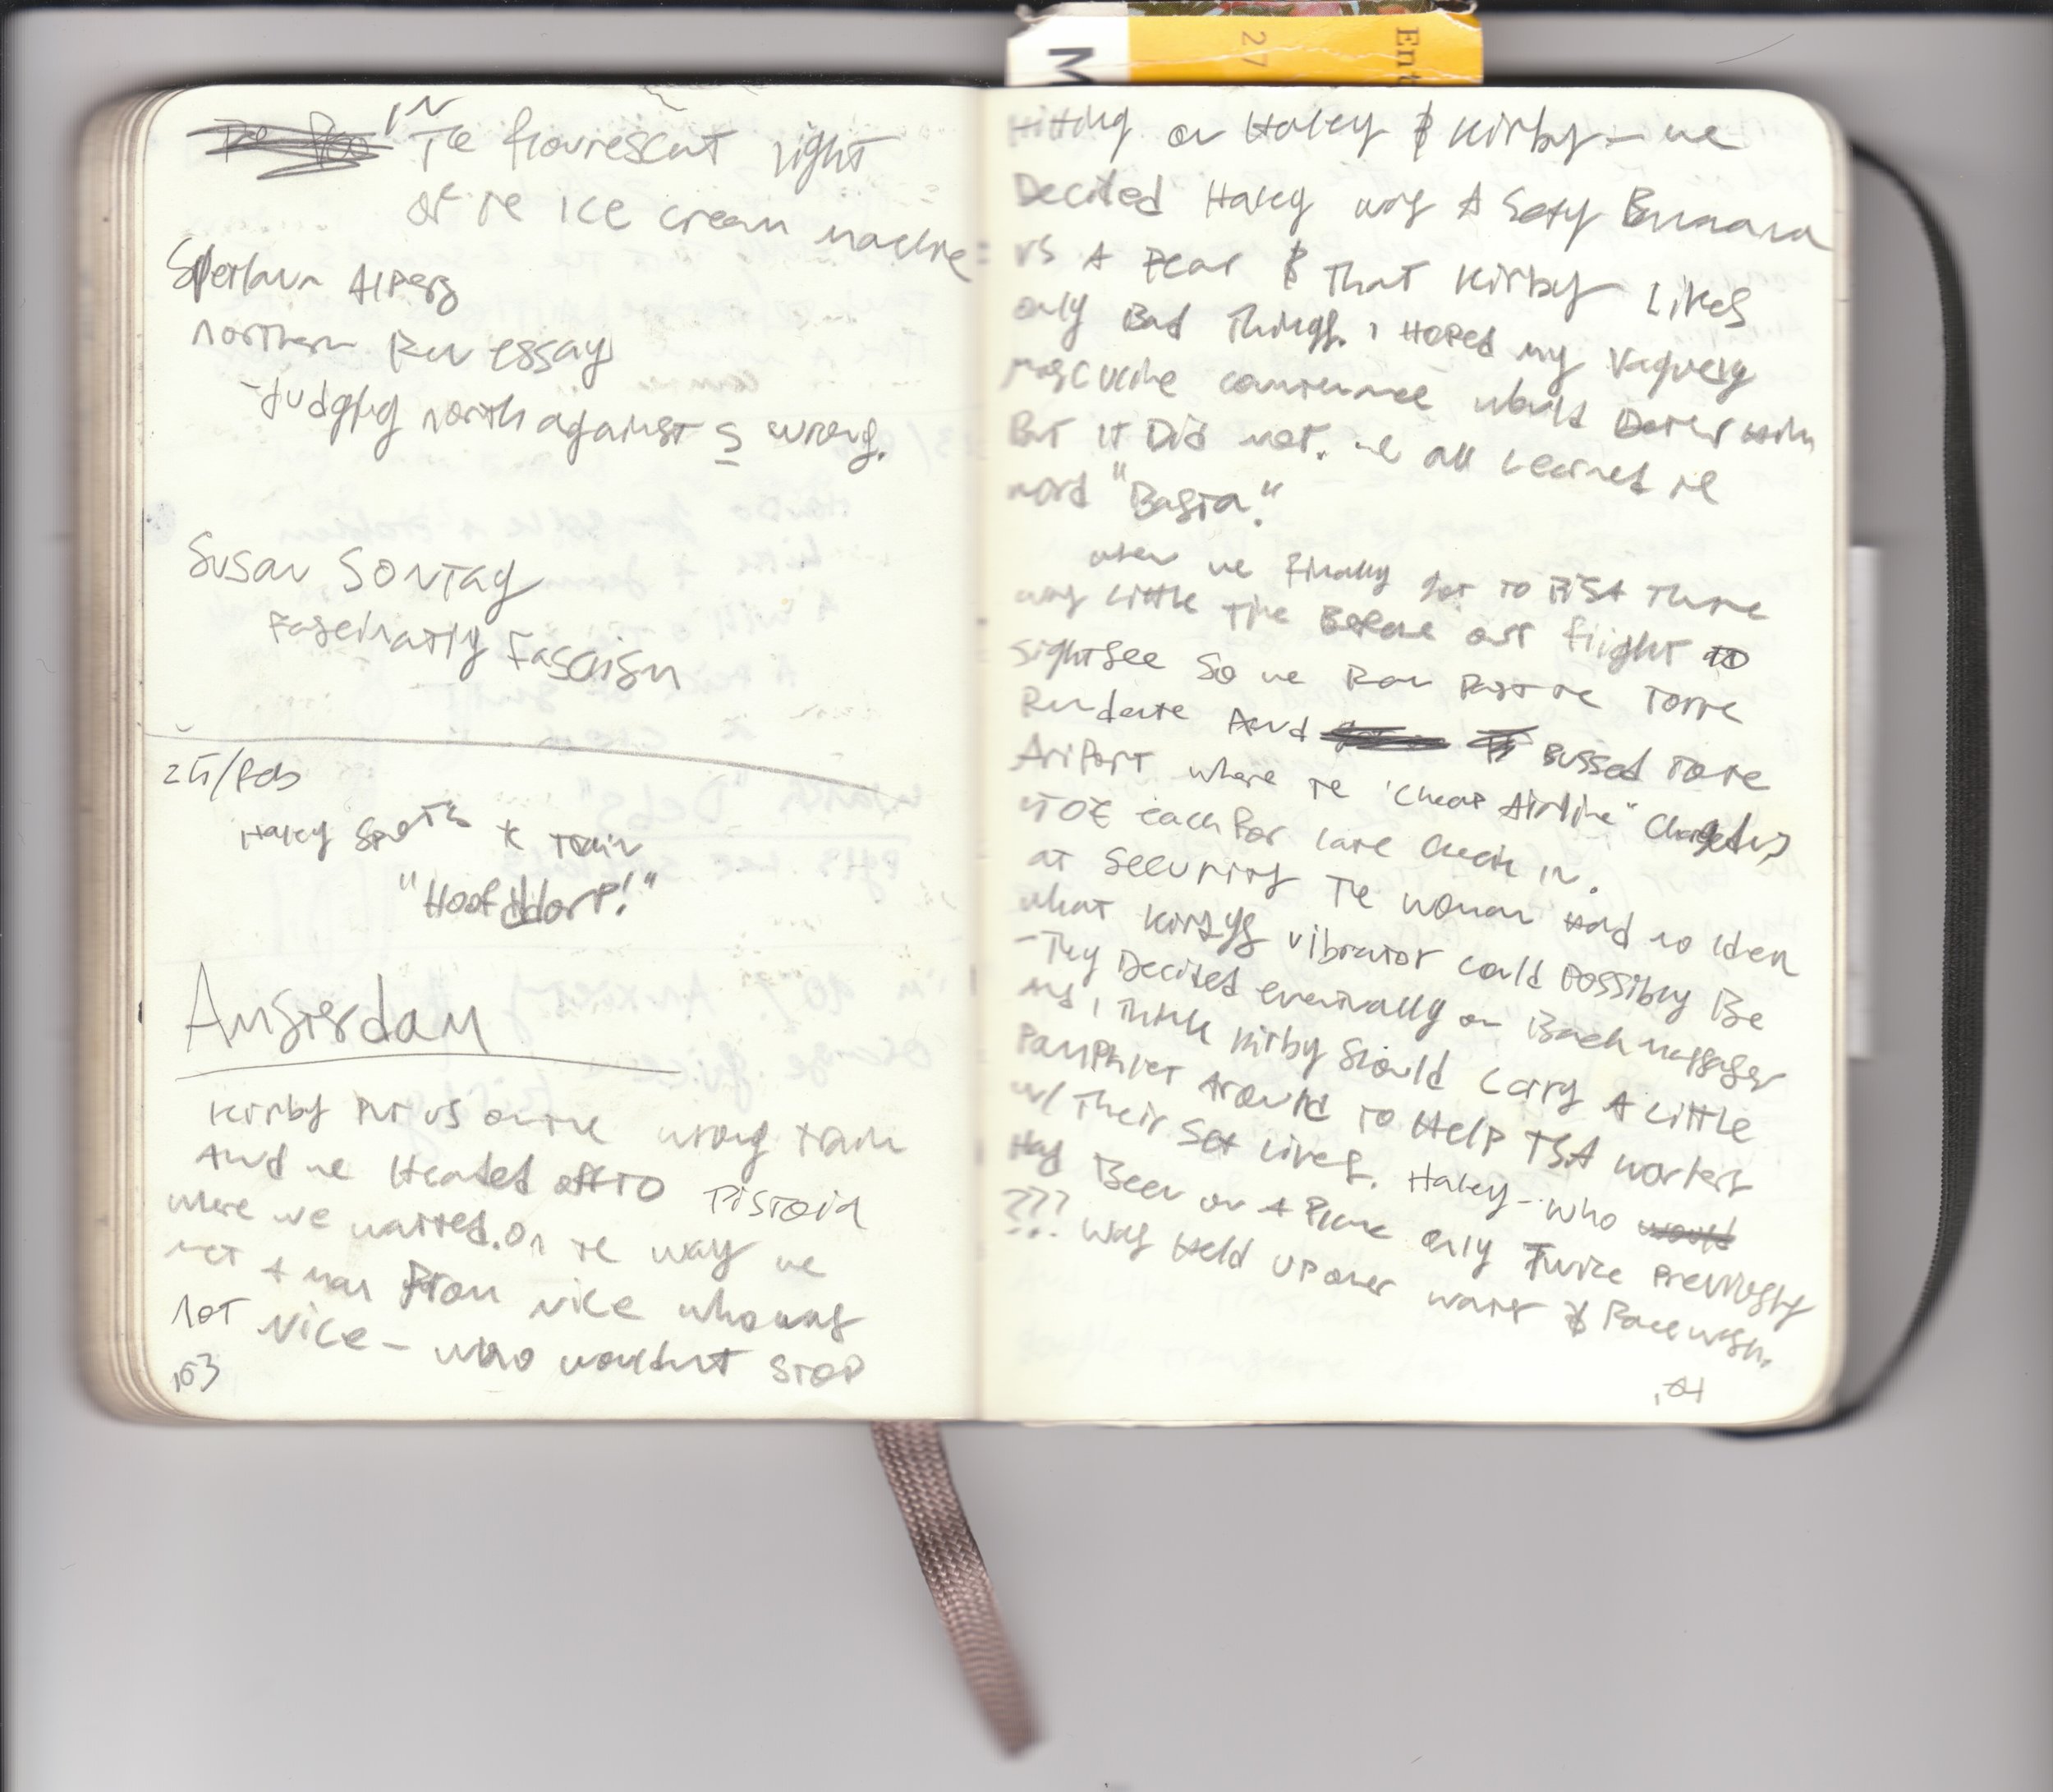 M
27
Ent
IN Te flourescent light
of te ice cream machine
Svetlana Alpers
Northern Ren essay
-Judging north against S wrong.
Susan Sontag
Fascinating Fascism
25/Feb
Haley spots a train
"Hoofddorp!"
Amsterdam
Kirby put us on the wrong train
And we Headed off to Pistoia
where we waited. On te way we
met a man from Nice who was
not Nice - who wouldnt stop
103
Hitting on Haley & Kirby - we
Decided Haley was A Sexy Banana
vs A Pear & That Kirby Likes
only Bad Things. I Hoped my Vaguely
masculine countenance would Deter him
But it Did not. we all Learned te
word "Basta."
when we finally got to PISA There
was little Time Before our flight to
sightsee So we Ran Past te Torre
Pendente And Bussed to te
Ariport where te "Cheap Airline" Charged us
40€ each for late check in.
at security Te woman Had no iden
what Kirbys vibrator could Possibly Be
-They Decided eventually on Back massager
and I think Kirby Should Carry A Little
Pamphlet Around to Help TSA workers
w/ Their Sex Lives. Haley - who would
Had Been on A Plane only Twice Previously
??? was Held up over water & Face wash.
104